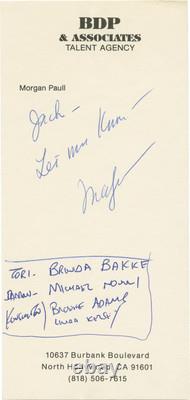 BDP
& ASSOCIATES
TALENT AGENCY
Morgan Paull
Jack -
Let me Know -
TORI - BRENDA BAKKE
MICHAEL NOURI
BROOKE ADAMS
LINDA KELSEY
10637 Burbank Boulevard
North Hollywood, CA 91601
(818) 506-7615
ebay